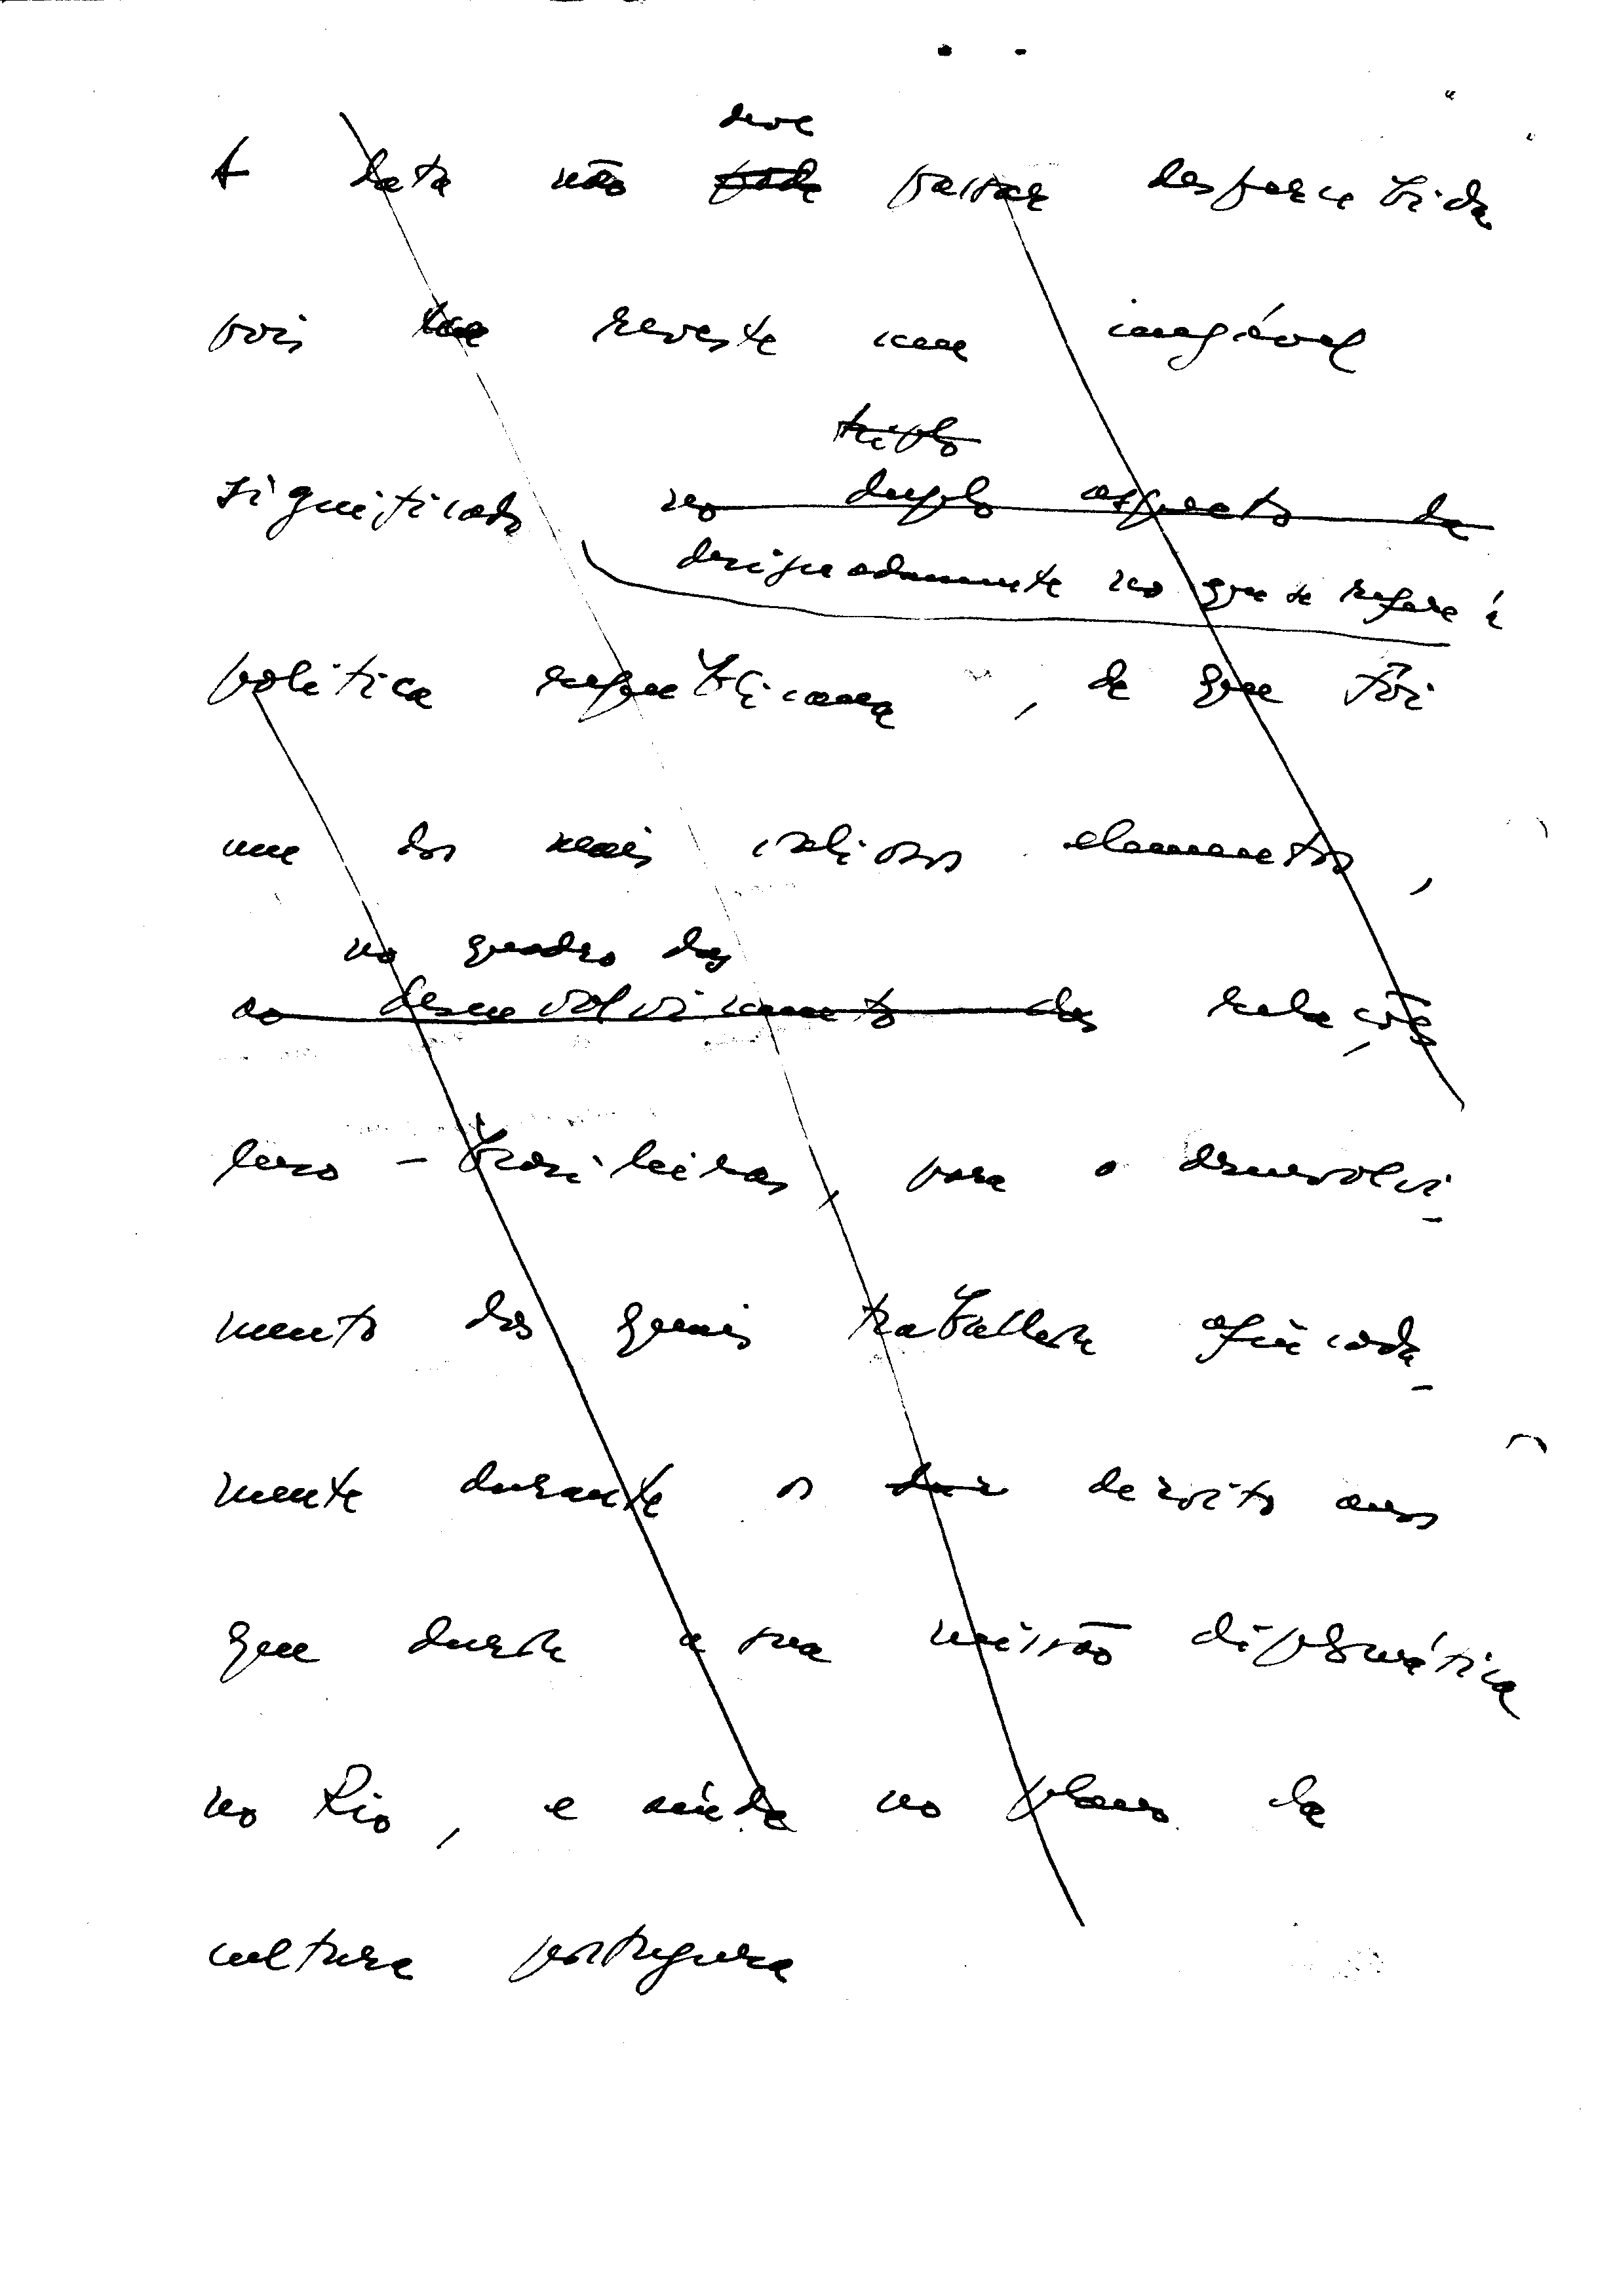 deve
A data não pode passar despercebida
pois tem reveste um inegável
triplo
significado no duplo aspecto da
designadamente no que se refere à
política republicana, de que foi
um dos mais valiosos elementos,
no quadro das
ao desenvolvimento das relações
luso-brasileiras, para o desenvolvi-
mento das quais trabalhou afincada-
mente durante os dezoito anos
que durou a sua missão diplomática
no Rio, e ainda no plano da
cultura portuguesa